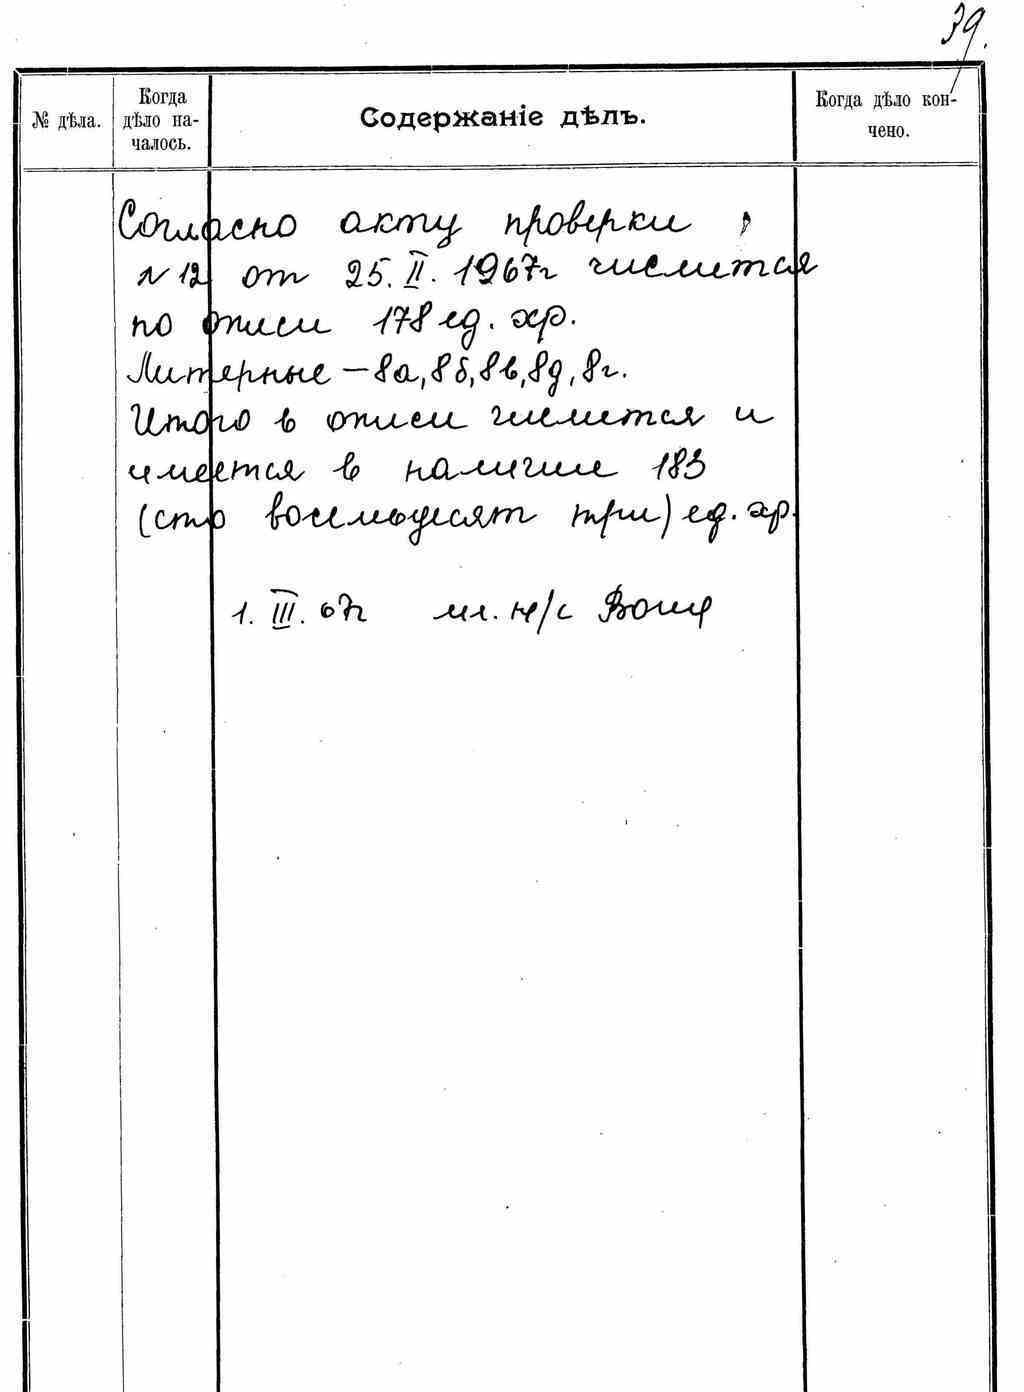 39.
№ дѣла.
Когда
дѣло на-
чалось.
Содержаніе дѣлъ.
Когда дѣло кон-
чено.
Согласно акту проверки
№ 12 от 25. II. 1967г числится
по описи 178 ед. хр.
Литерные – 8а, 8б, 8в, 8д, 8г.
Итого в описи числится и
имеется в наличии 183
(сто восемьдесят три) ед. хр.
1. III. 67г мл. н/с